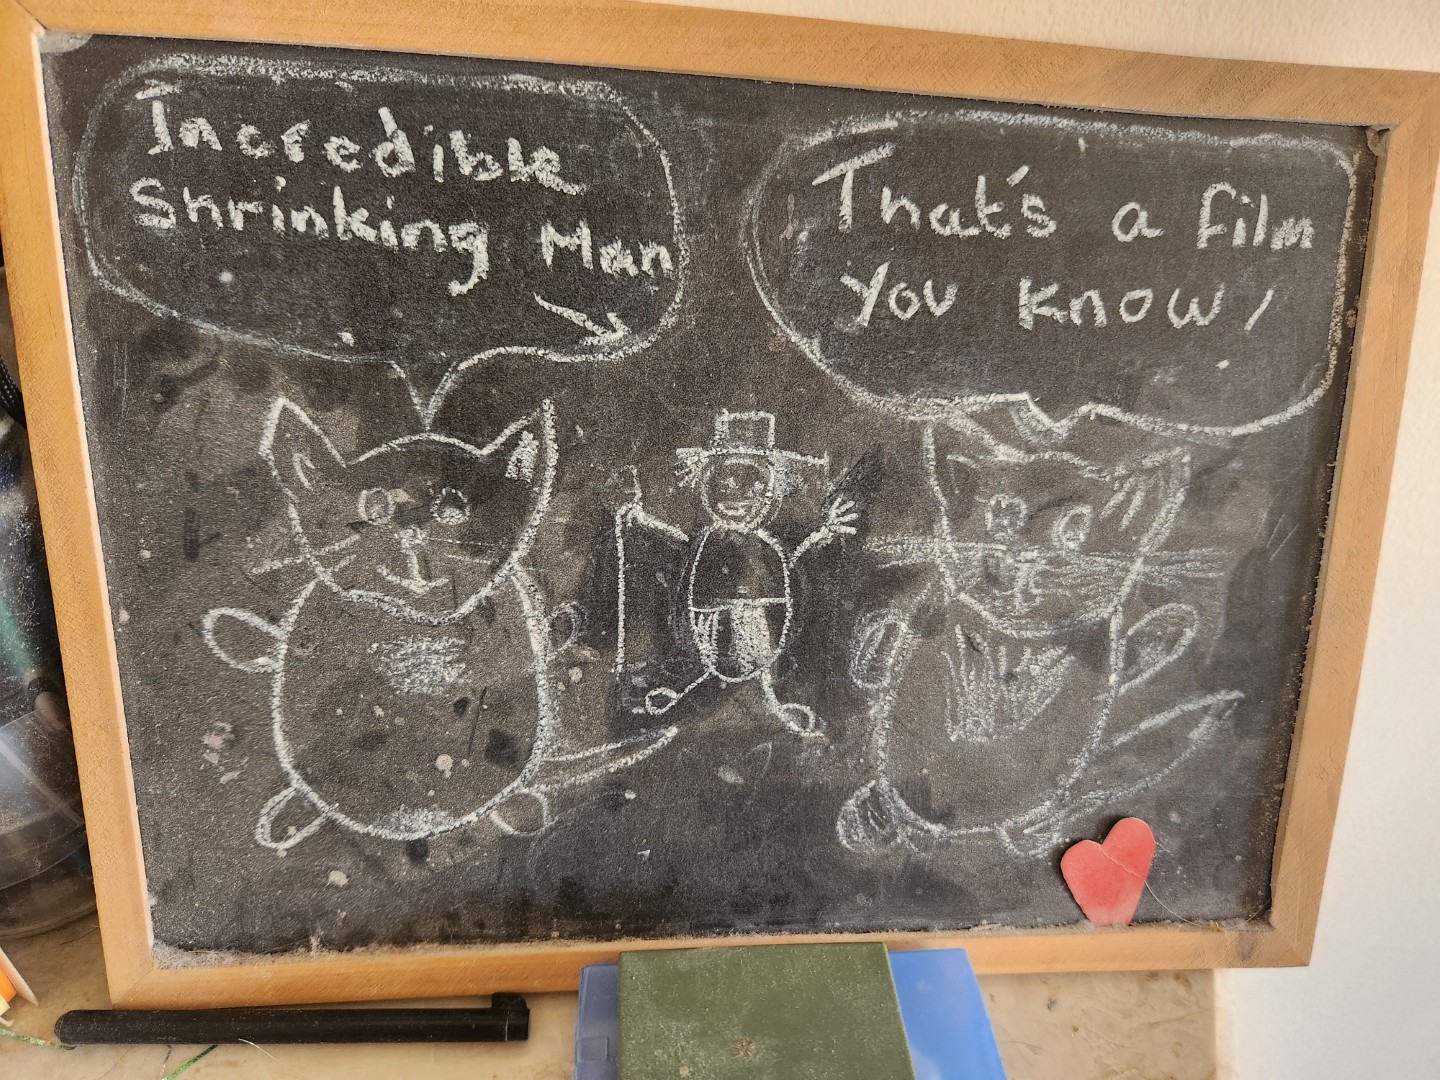 Incredible
Shrinking Man
That's a film
you know,